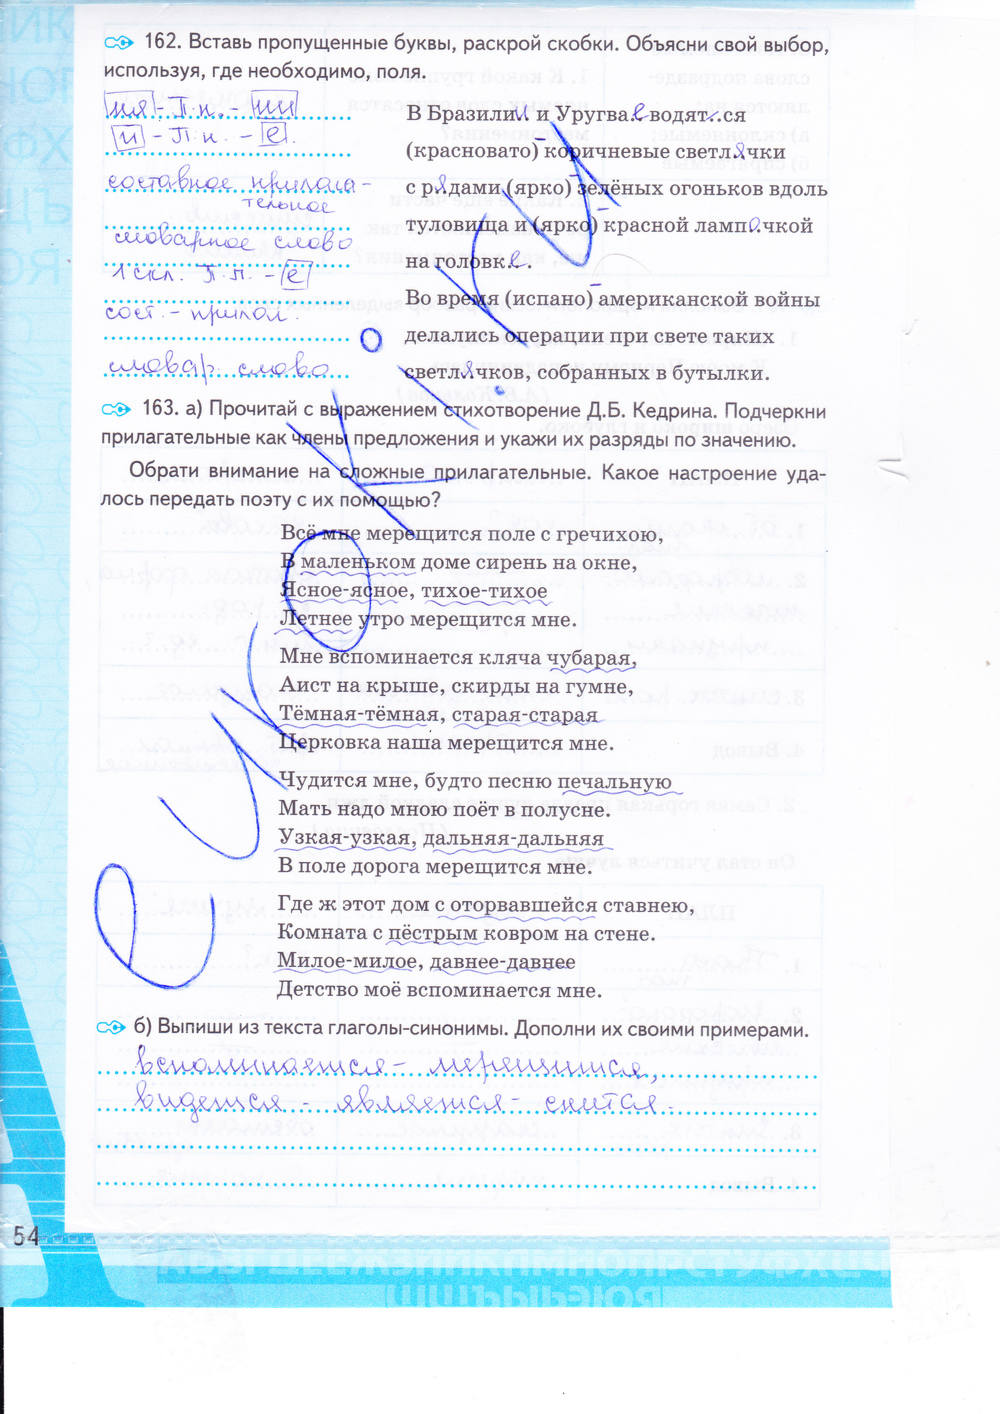 162. Вставь пропущенные буквы, раскрой скобки. Объясни свой выбор,
используя, где необходимо, поля.
ия - П.п. - ии
й - П.п. - е.
составное прилага-
тельное
словарное слово
1 скл. П.п. - е
сост. - прилаг.
словар. слово
В Бразилии и Уругвае водятся
(красновато)-коричневые светлячки
с рядами (ярко)-зелёных огоньков вдоль
туловища и (ярко)-красной лампочкой
на головке.
Во время (испано)-американской войны
делались операции при свете таких
светлячков, собранных в бутылки.
163. а) Прочитай с выражением стихотворение Д.Б. Кедрина. Подчеркни
прилагательные как члены предложения и укажи их разряды по значению.
Обрати внимание на сложные прилагательные. Какое настроение уда-
лось передать поэту с их помощью?
Всё мне мерещится поле с гречихою,
В маленьком доме сирень на окне,
Ясное-ясное, тихое-тихое
Летнее утро мерещится мне.
Мне вспоминается кляча чубарая,
Аист на крыше, скирды на гумне,
Тёмная-тёмная, старая-старая
Церковка наша мерещится мне.
Чудится мне, будто песню печальную
Мать надо мною поёт в полусне.
Узкая-узкая, дальняя-дальняя
В поле дорога мерещится мне.
Где ж этот дом с оторвавшейся ставнею,
Комната с пёстрым ковром на стене.
Милое-милое, давнее-давнее
Детство моё вспоминается мне.
б) Выпиши из текста глаголы-синонимы. Дополни их своими примерами.
вспоминается - мерещится,
видется - является - снится.
54